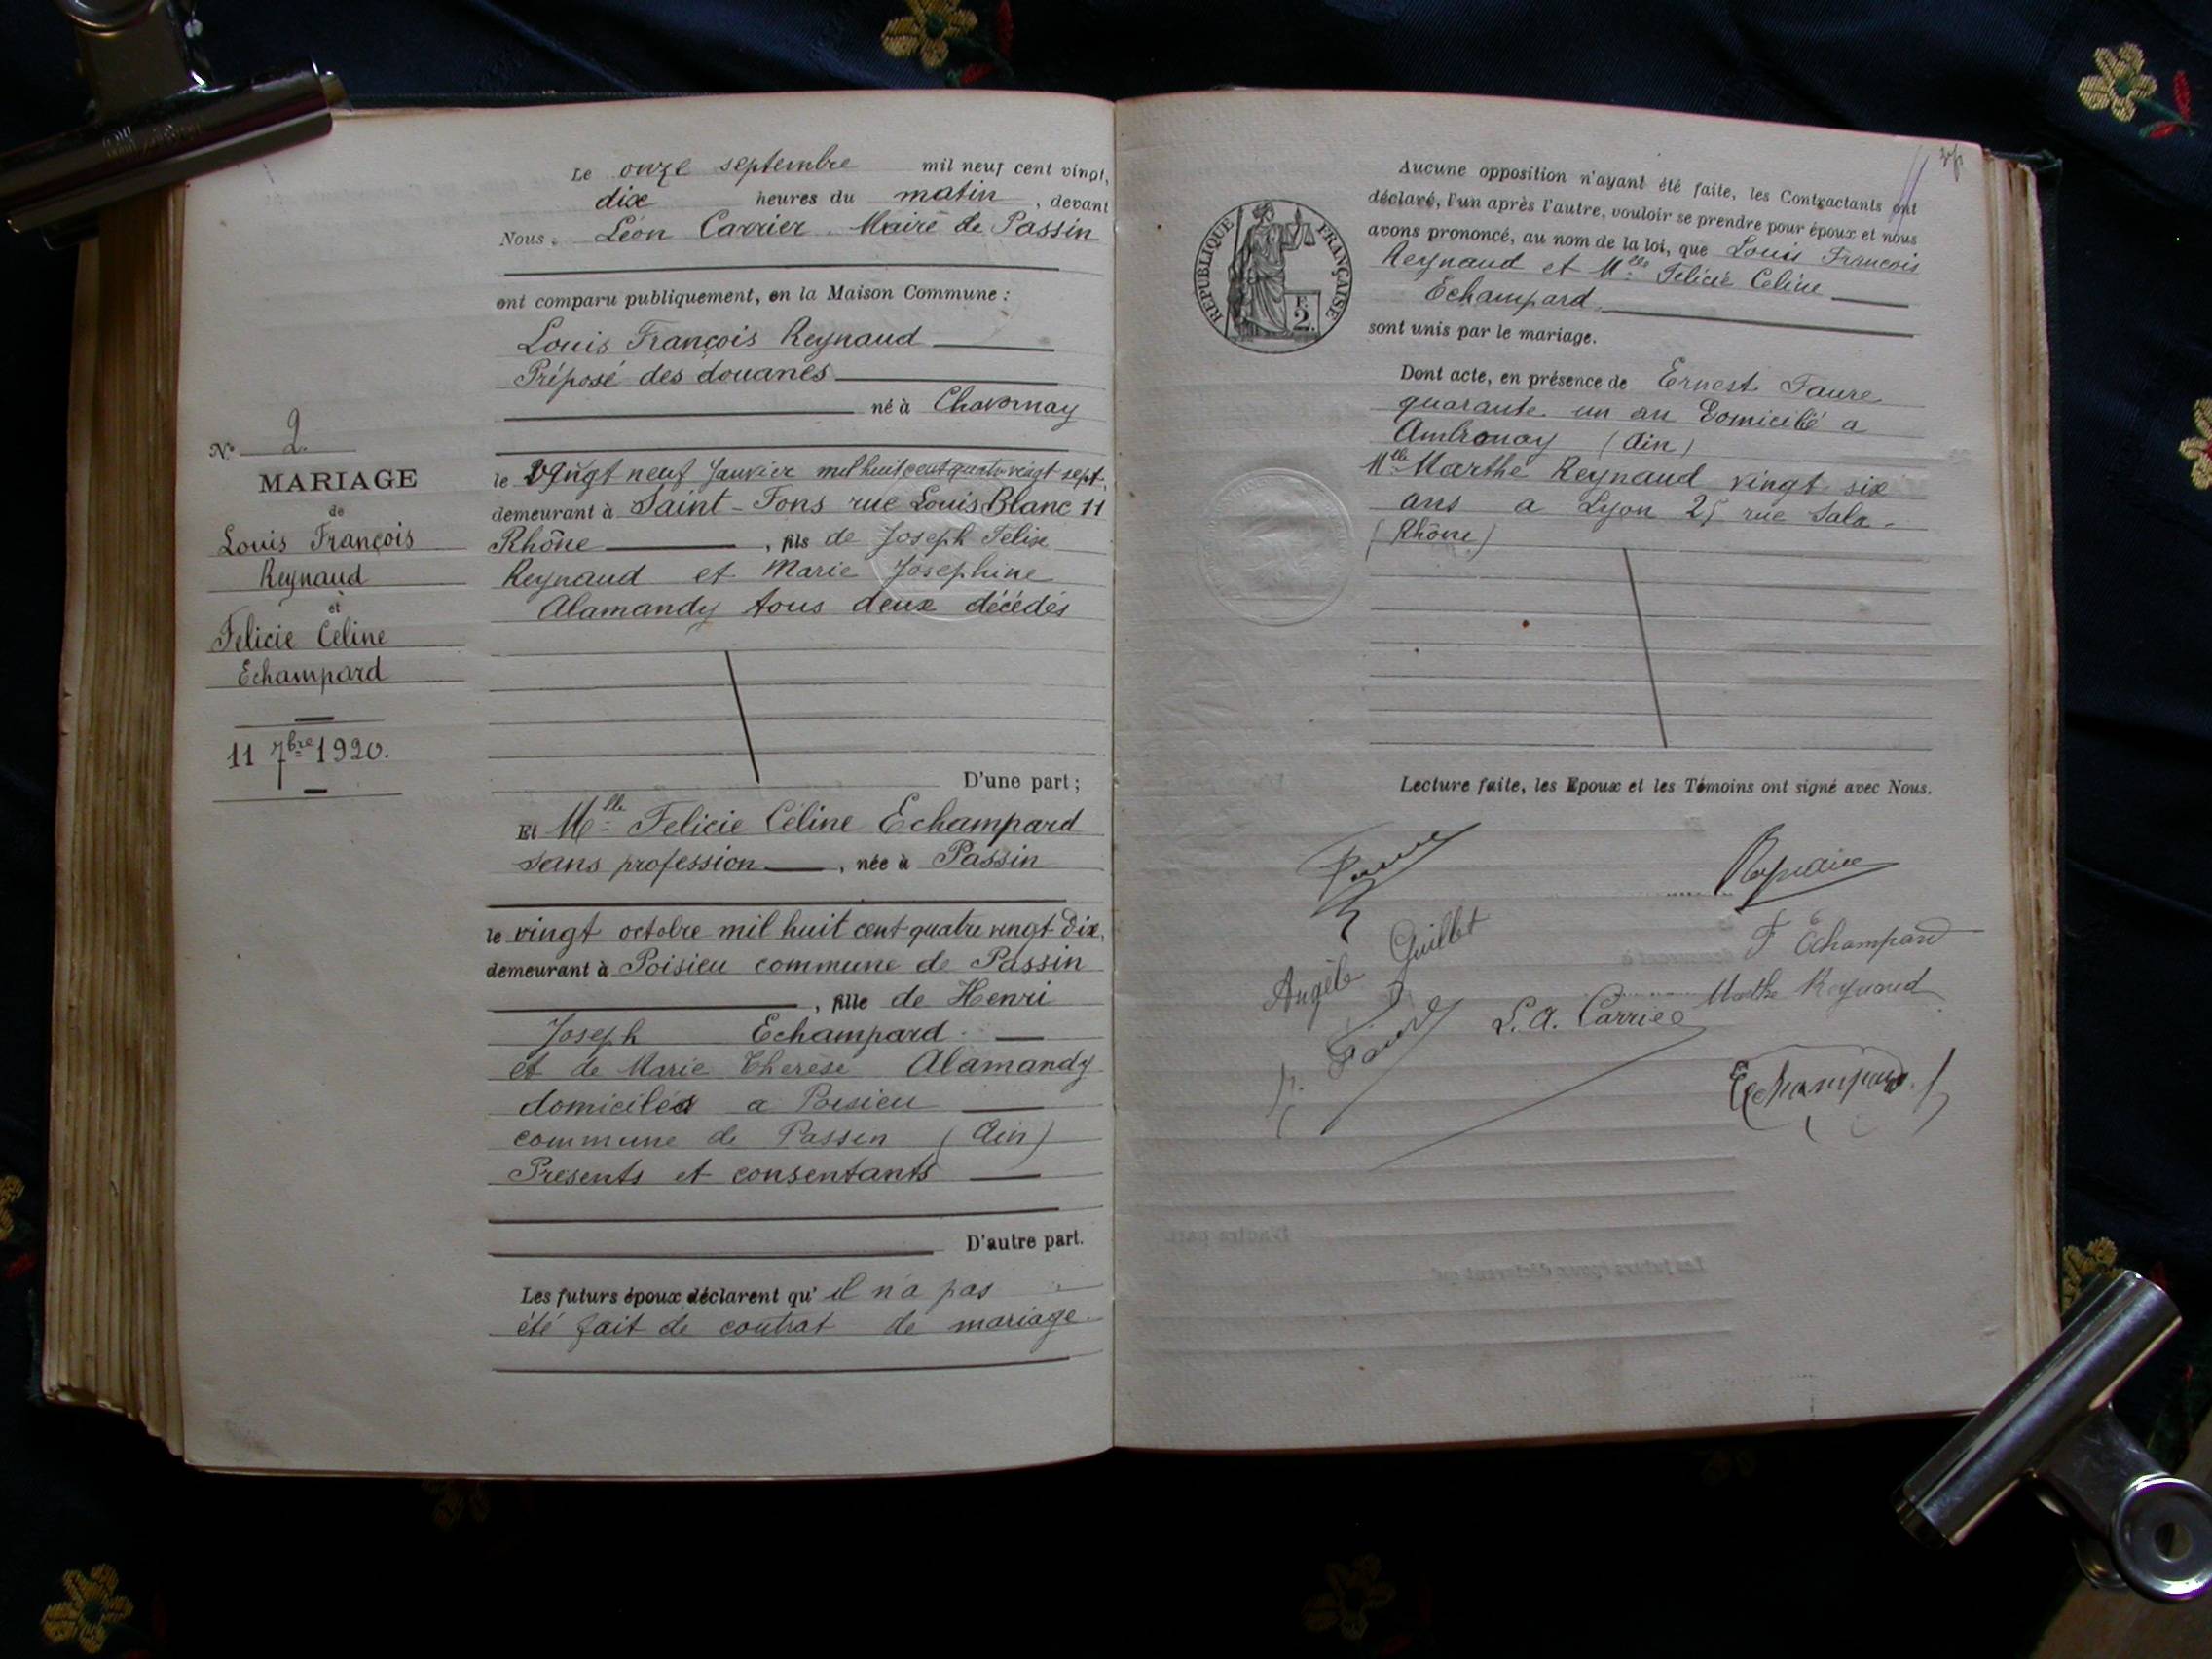 N° 2
MARIAGE
de
Louis François
Reynaud
et
Felicie Celine
Echampard
11 7bre 1920.
Le onze septembre mil neuf cent vingt,
dix heures du matin, devant
Nous, Léon Carrier Maire de Passin
ont comparu publiquement, en la Maison Commune :
Louis François Reynaud
Préposé des douanes
né à Chavornay
le Vingt neuf Janvier mil huit cent quatre vingt sept,
demeurant à Saint-Fons rue Louis Blanc 11
Rhône, fils de Joseph Felix
Reynaud et Marie Josephine
Alamandy tous deux décédés
D'une part ;
Et Mlle Felicie Céline Echampard
sans profession, née à Passin
le vingt octobre mil huit cent quatre vingt Dix,
demeurant à Poisieu commune de Passin
, fille de Henri
Joseph Echampard
et de Marie Therese Alamandy
domiciliés a Poisieu
commune de Passin (Ain)
Presents et consentants
D'autre part.
Les futurs époux déclarent qu' il n'a pas
été fait de contrat de mariage
Aucune opposition n'ayant été faite, les Contractants ont
déclaré, l'un après l'autre, vouloir se prendre pour époux et nous
avons prononcé, au nom de la loi, que Louis François
Reynaud et Mlle Félicie Celine
Echampard
sont unis par le mariage.
REPUBLIQUE FRANÇAISE
F.
2
Dont acte, en présence de Ernest Faure
quarante un an Domicilié a
Ambronay (Ain)
Mlle Marthe Reynaud vingt six
ans a Lyon 25 rue Sala
(Rhône)
Lecture faite, les Epoux et les Témoins ont signé avec Nous.
Angèle Guillet
F Echampard
Marthe Reynaud
L. A. Carrier
Echampard